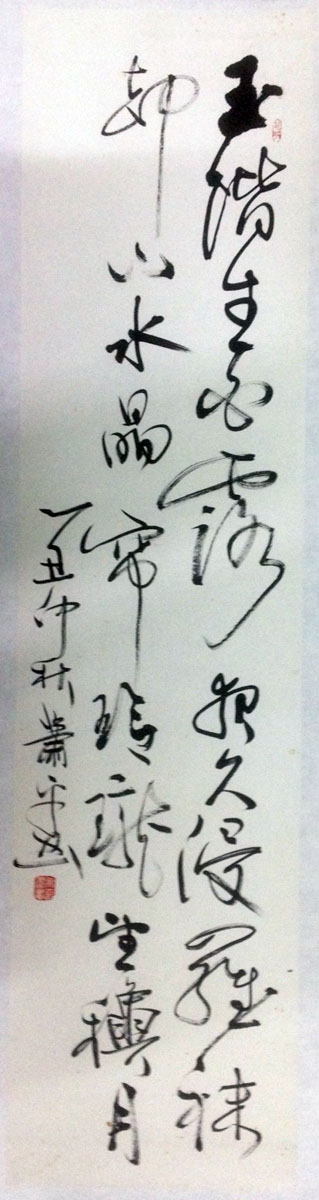 玉階生白露夜久侵羅袜
却下水晶帘玲瓏望穐月
丁丑仲秋蕭平書